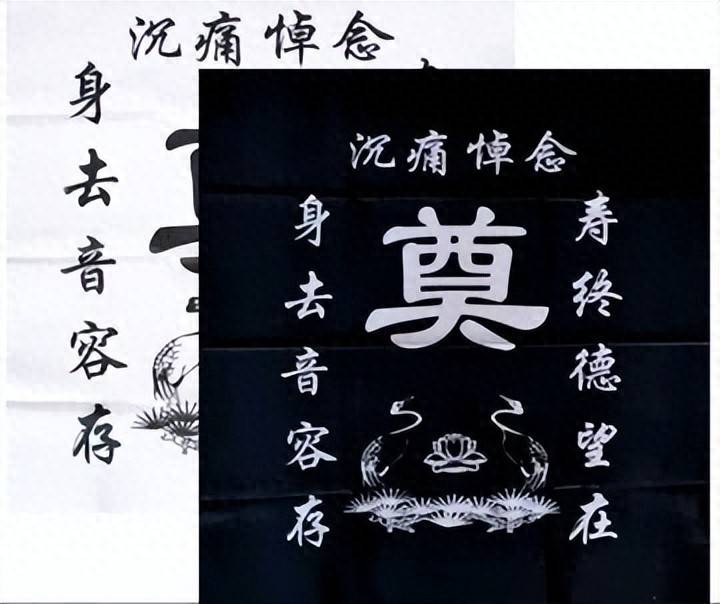 沉痛悼念
身去音容存
沉痛悼念
奠
寿终德望在
身去音容存